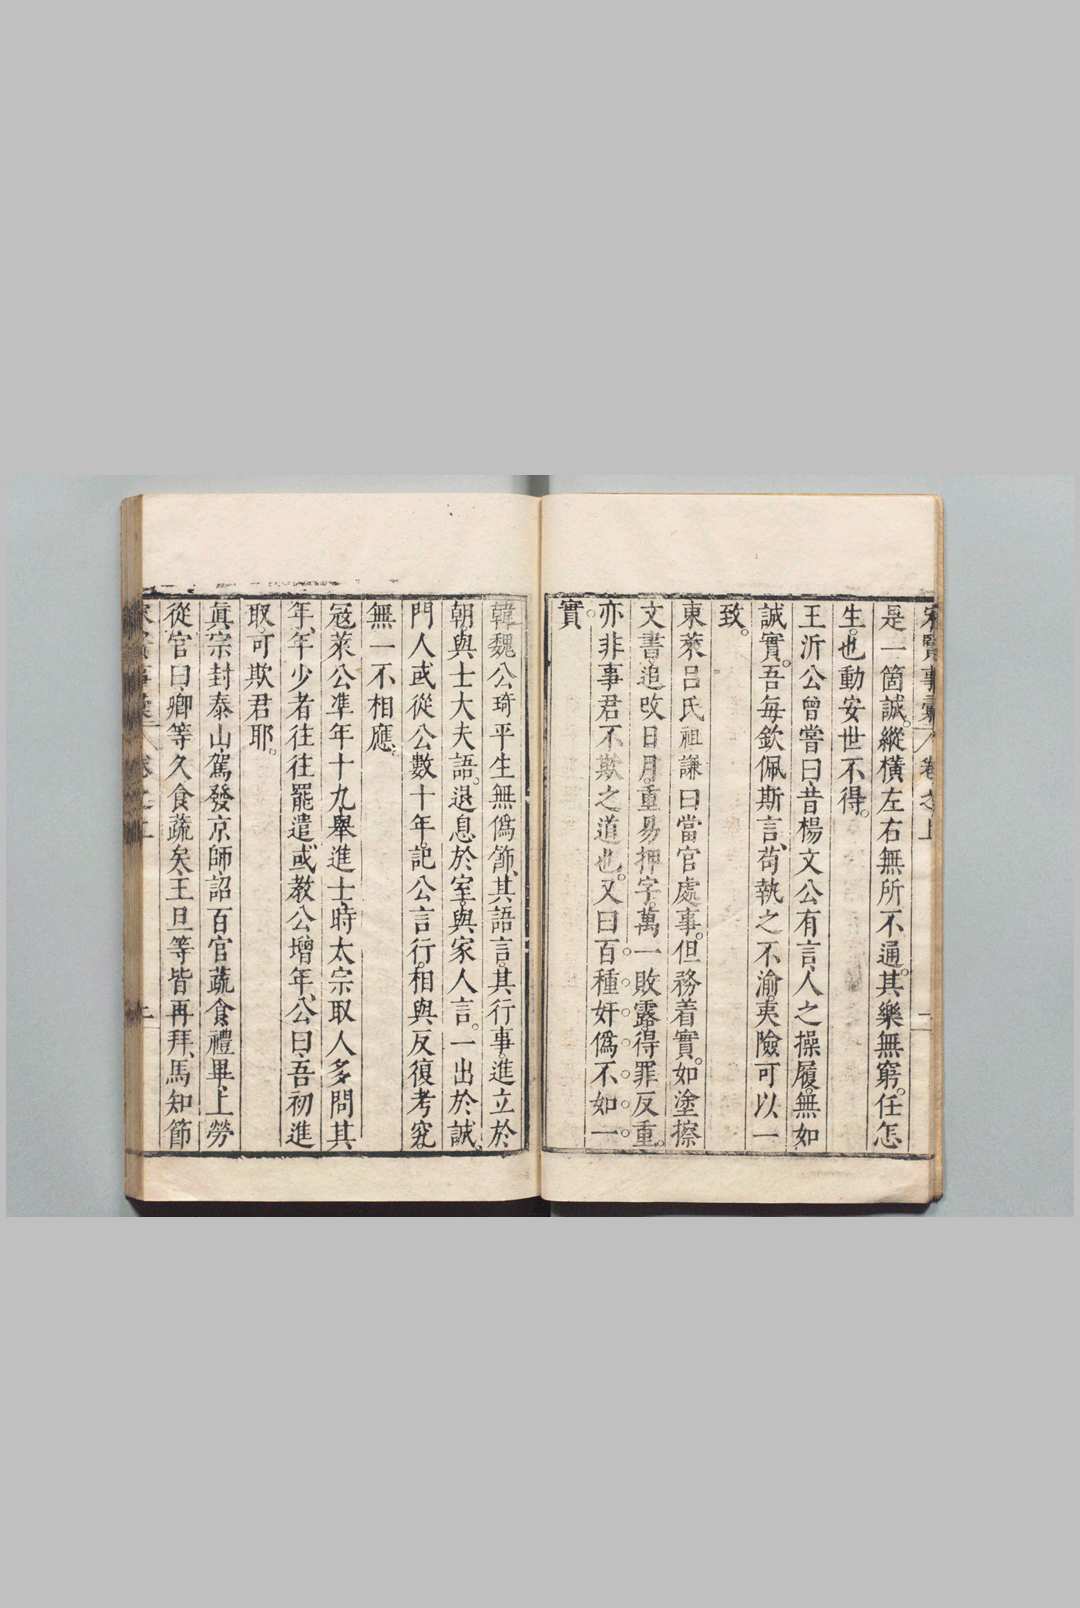 宋賢事彙 卷之上
是一箇誠。縱橫左右無所不通。其樂無窮。任怎
生。也動安世不得。
王沂公曾嘗曰、昔楊文公有言、人之操履。無如
誠實。吾每欽佩斯言、苟執之不渝。夷險可以一
致。
東萊呂氏祖謙曰、當官處事。但務着實。如塗擦
文書。追改日月。重易押字。萬一敗露。得罪反重。
亦非事君不欺之道也。又曰、百種奸僞。不如一
實。
韓魏公琦平生無僞飾、其語言。其行事。進立於
朝。與士大夫語。退息於室。與家人言。一出於誠、
門人或從公數十年。記公言行。相與反復考究
無一不相應。
寇萊公準年十九、舉進士。時太宗取人多問其
年、年少者往往罷遣。或教公增年、公曰、吾初進
取。可欺君耶。
眞宗封泰山、駕發京師、詔百官蔬食。禮畢、上勞
從官曰、卿等久食蔬矣、王旦等皆再拜、馬知節